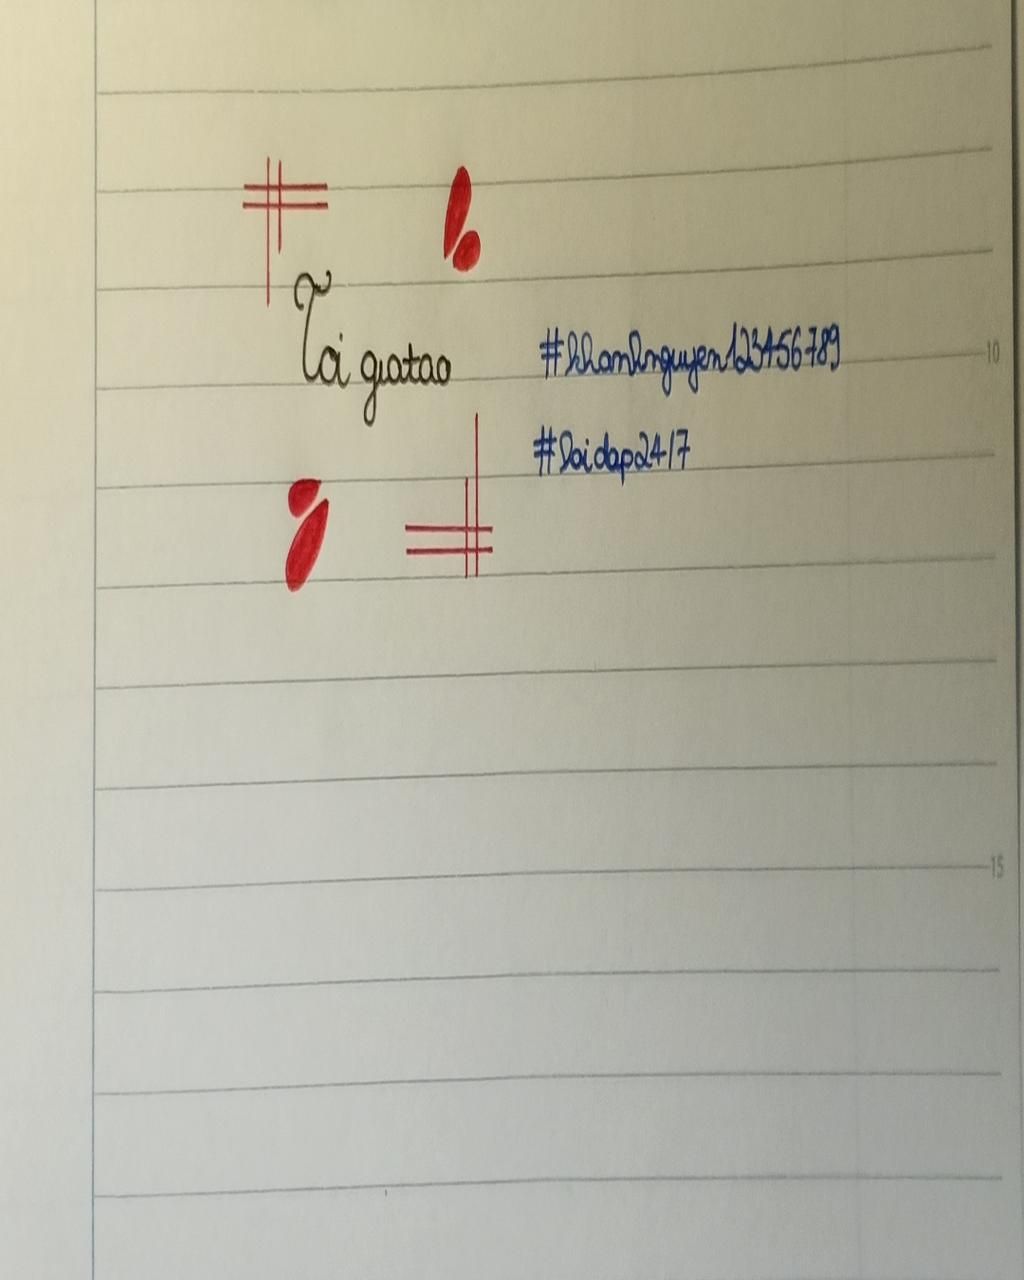 Tái giatao
#khanhnguyen123456789
#Doidap24/7
10
15